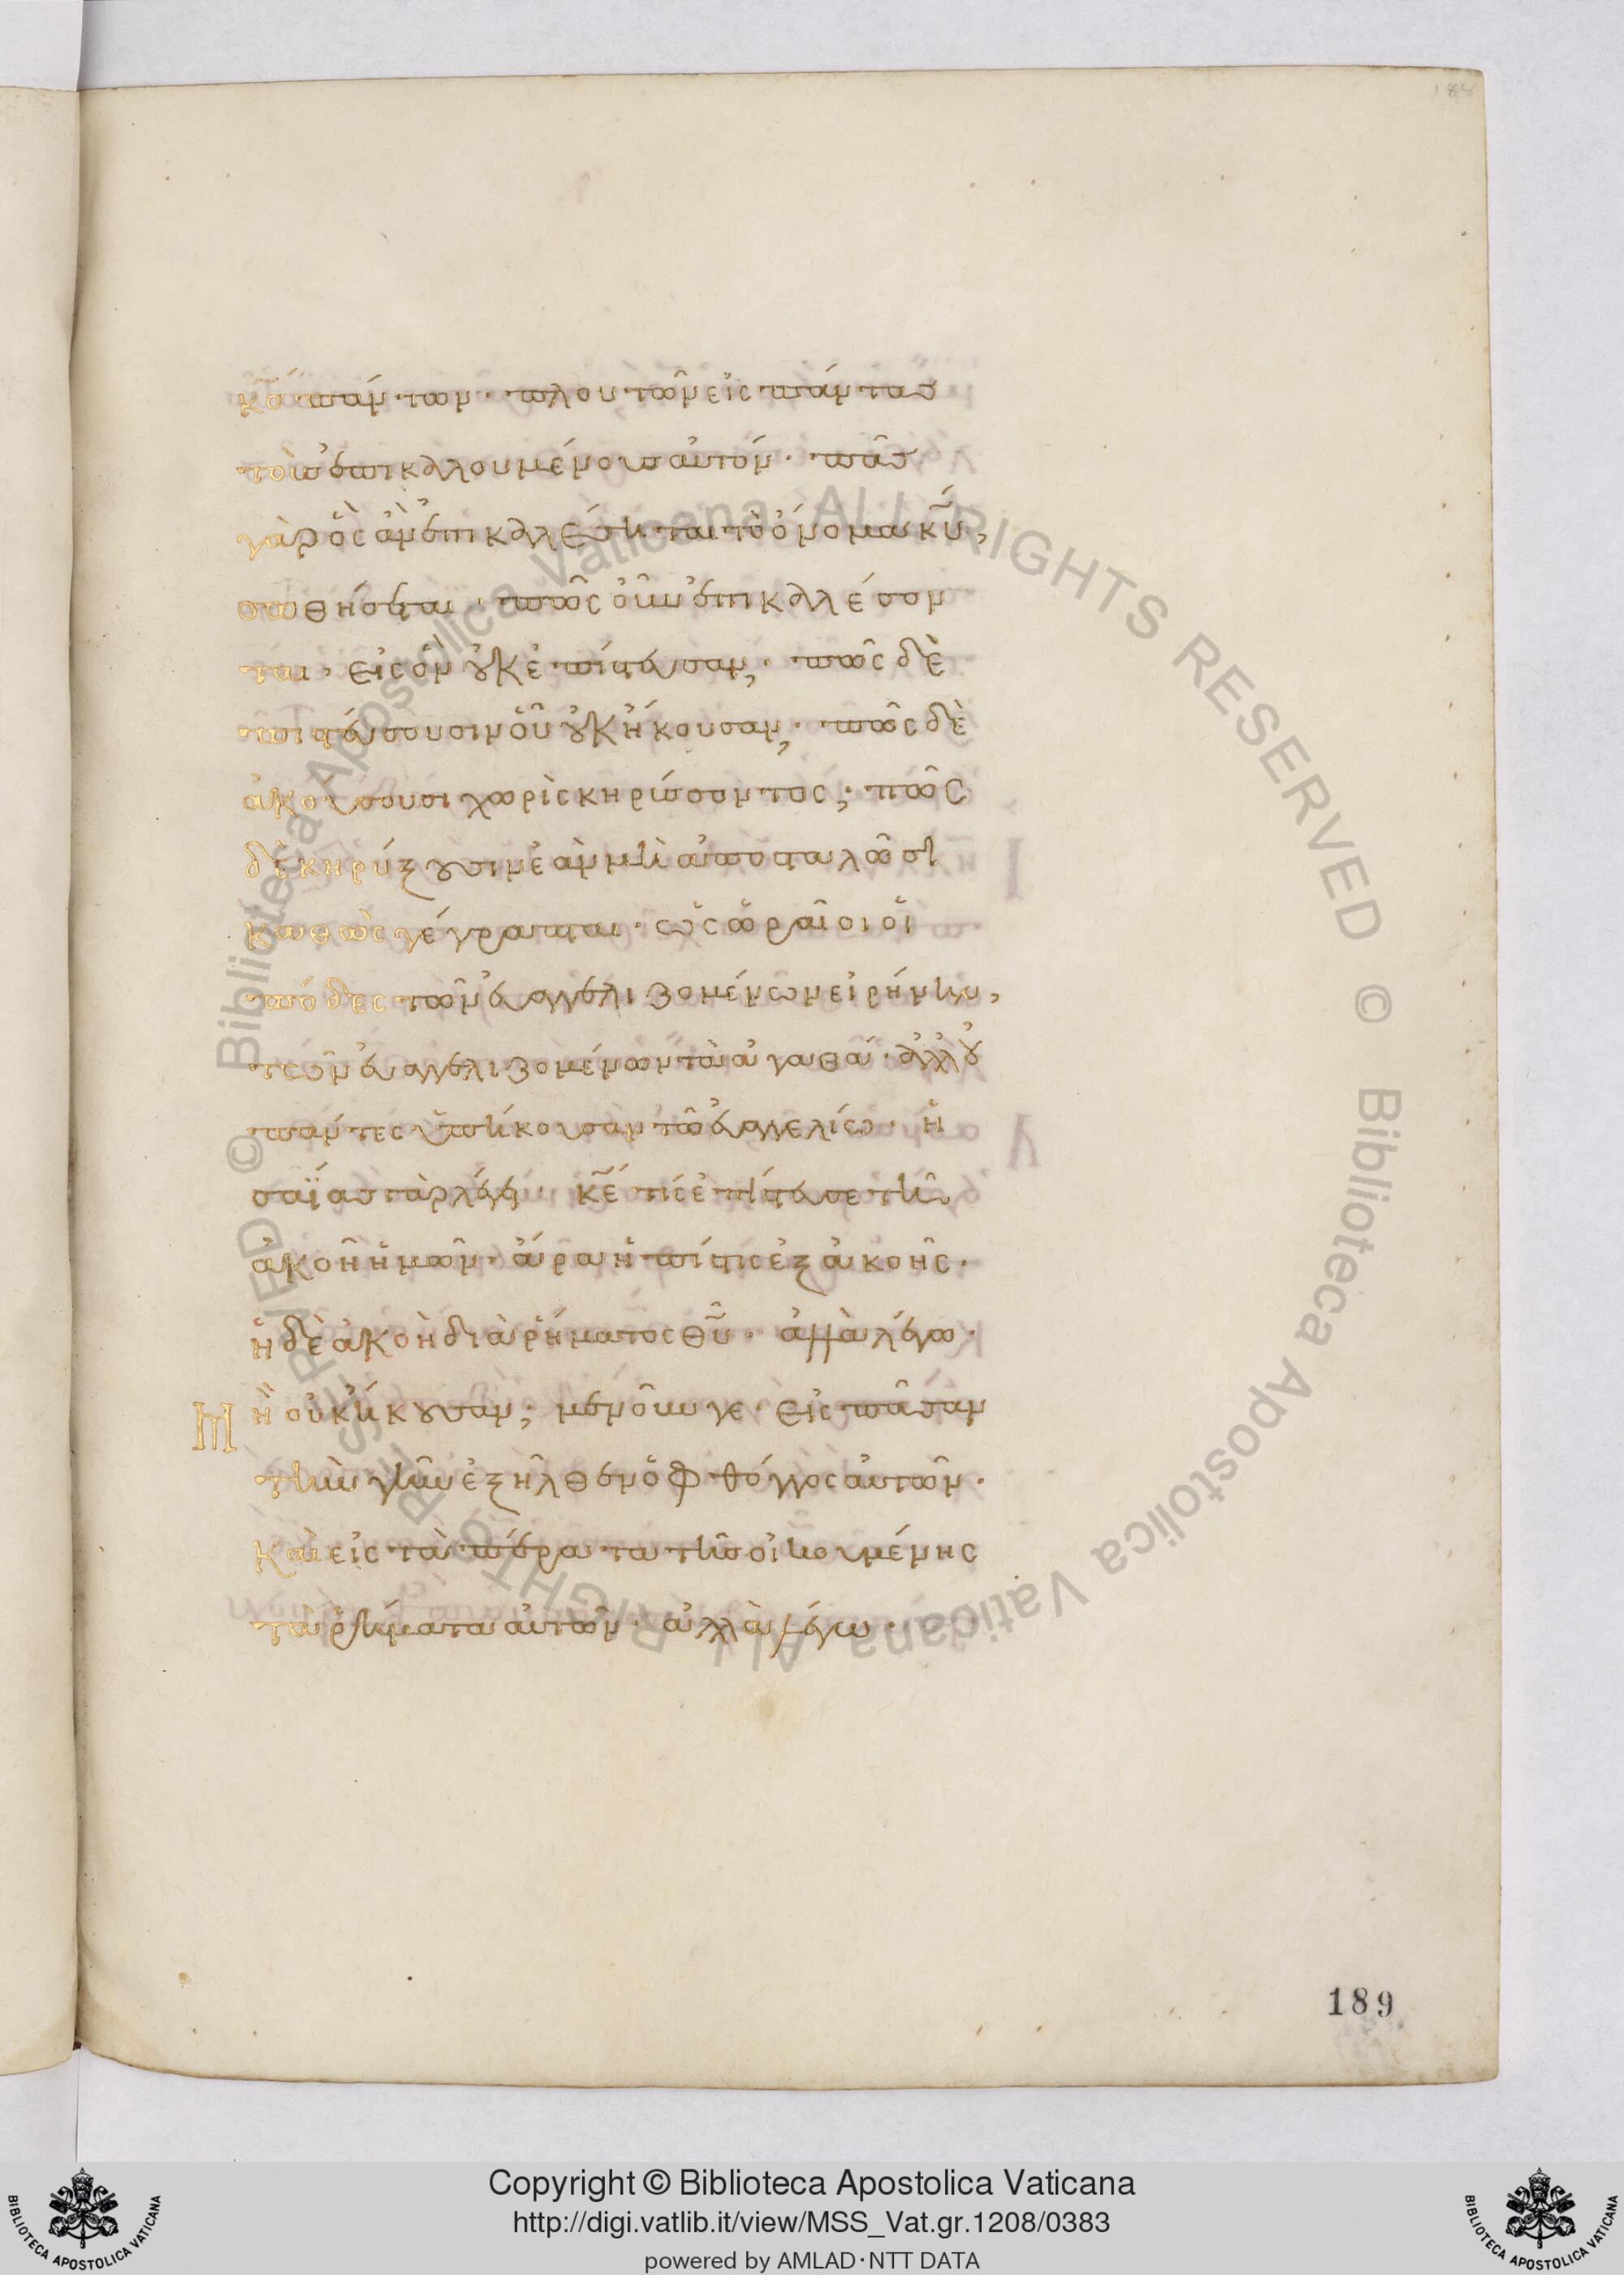 188
κ̅ς̅ πάντων· πλουτῶν εἰς πάντας
τοὺς ἐπικαλουμένους αὐτόν· πᾶς
γὰρ ὃς ἂν ἐπικαλέσηται τὸ ὄνομα κ̅υ̅,
σωθήσεται· πῶς οὖν ἐπικαλέσον
ται, εἰς ὃν οὐκ ἐπίστευσαν; πῶς δὲ
πιστεύσουσιν οὗ οὐκ ἤκουσαν; πῶς δὲ
ἀκούσουσι χωρὶς κηρύσσοντος; πῶς
δὲ κηρύξουσιν ἐὰν μὴ ἀποσταλῶσι
καθὼς γέγραπται· ὡς ὡραῖοι οἱ
πόδες τῶν εὐαγγελιζομένων εἰρήνην,
τῶν εὐαγγελιζομένων τὰ ἀγαθά· ἀλλ' οὐ
πάντες ὑπήκουσαν τῶ εὐαγγελίω· ἡ
σαΐας γὰρ λέγει· κ̅ε̅ τίς ἐπίστευσε τῆ
ἀκοῆ ἡμῶν· ἄρα ἡ πίστις ἐξ ἀκοῆς·
ἡ δὲ ἀκοὴ διὰ ῥήματος θ̅υ̅· ἀλλὰ λέγω·
Μ
ὴ οὐκ ἤκουσαν; μενοῦνγε· εἰς πᾶσαν
τὴν γῆν ἐξῆλθεν ὁ φθόγγος αὐτῶν·
καὶ εἰς τὰ πέρατα τῆς οἰκουμένης
τὰ ῥήματα αὐτῶν· ἀλλὰ λέγω·
189
© Biblioteca Apostolica Vaticana ALL RIGHTS RESERVED © Biblioteca Apostolica Vaticana ALL RIGHTS RESERVED
Copyright © Biblioteca Apostolica Vaticana
http://digi.vatlib.it/view/MSS_Vat.gr.1208/0383
powered by AMLAD·NTT DATA
BIBLIOTECA APOSTOLICA VATICANA
BIBLIOTECA APOSTOLICA VATICANA